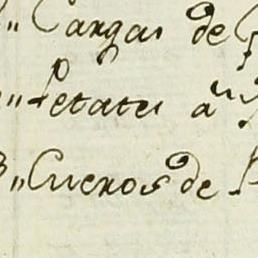 " Cargas de
" Petates á
" Cueros de